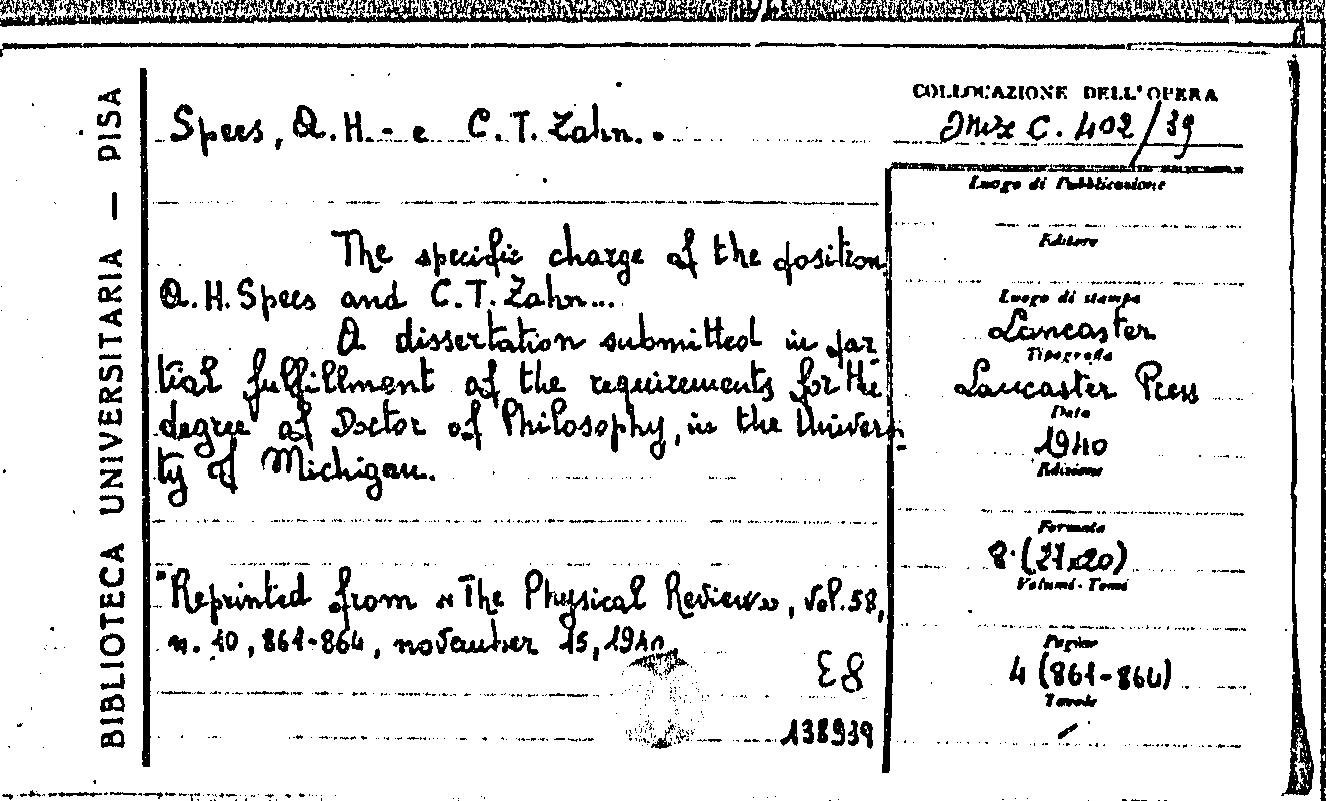 BIBLIOTECA UNIVERSITARIA — PISA
Spees, A. H. - e C. T. Zahn. .
The specific charge of the position
A. H. Spees and C. T. Zahn...
A dissertation submitted in par
tial fulfillment of the requirements for the
degree of Doctor of Philosophy, in the Univers
ty of Michigan.
"Reprinted from «The Physical Review», vol. 58,
n. 10, 861-864, november 15, 1940.
138939
COLLOCAZIONE DELL'OPERA
C. 402/39
Luogo di Pubblicazione
Editore
Luogo di stampa
Lancaster
Tipografia
Lancaster Press
Data
1940
Edizione
Formato
8° (27x20)
Volumi - Tomi
Pagine
4 (861-864)
Tavole
/